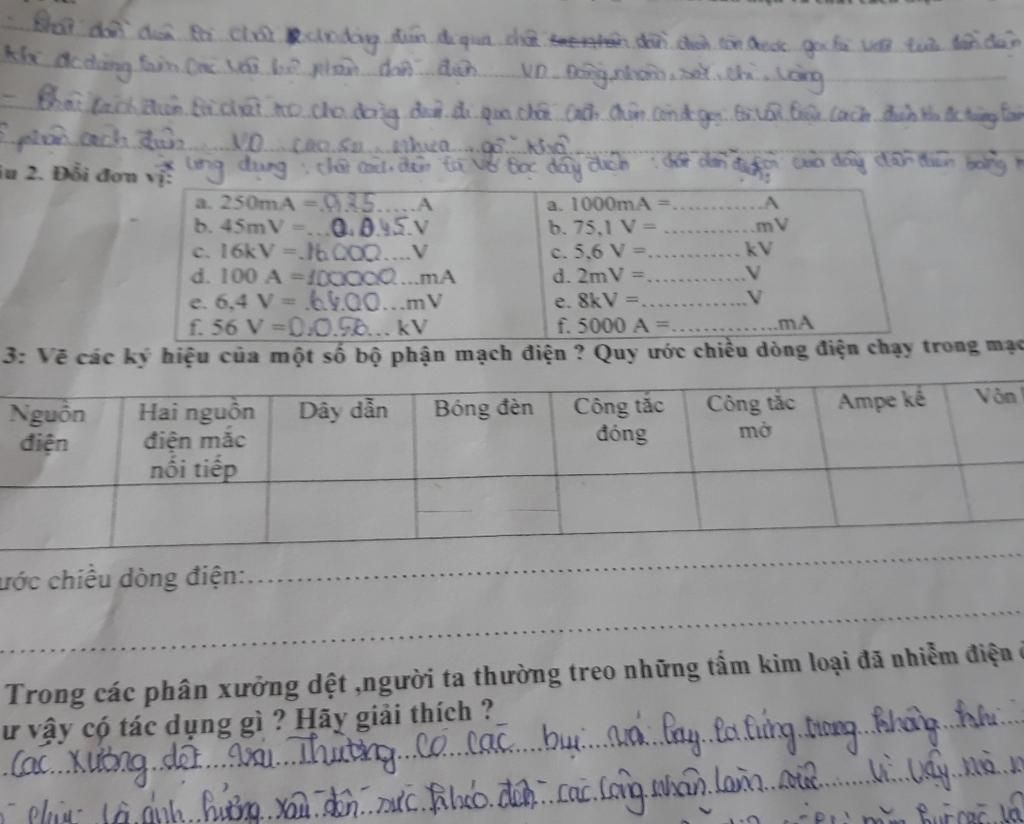 dẫn điện là chất cho dòng điện đi qua chất dẫn điện còn được gọi là vật liệu dẫn điện
khi được dùng làm các vật bộ phận dẫn điện VD Đồng, nhôm, sắt, chì, vàng
- Chất cách điện là chất ko cho dòng điện đi qua chất cách điện còn đc gọi là vật liệu cách điện khi đc dùng làm
phần cách điện VD cao su, nhựa, gỗ khô
* Ứng dụng : chất cách điện là vỏ bọc dây điện : của dây dẫn điện bằng
u 2. Đổi đơn vị:
a. 250mA =.0,25.....A a. 1000mA =............A
b. 45mV =...0.045.V b. 75,1 V = ............mV
c. 16kV =.16000....V c. 5,6 V =............ kV
d. 100 A =100000...mA d. 2mV =.............V
e. 6,4 V = .6400...mV e. 8kV =..............V
f. 56 V =0,056... kV f. 5000 A =..............mA
3: Vẽ các ký hiệu của một số bộ phận mạch điện ? Quy ước chiều dòng điện chạy trong mạc
Nguồn điện Hai nguồn điện mắc nối tiếp Dây dẫn Bóng đèn Công tắc đóng Công tắc mở Ampe kế Vôn
ước chiều dòng điện:
Trong các phân xưởng dệt ,người ta thường treo những tấm kim loại đã nhiễm điện ở
ư vậy có tác dụng gì ? Hãy giải thích ?
Các xưởng dệt vải Thường có các bụi vải bay lơ lửng trong không khí
là ảnh hưởng xấu đến sức khỏe đến các công nhân làm việc vì vậy mà